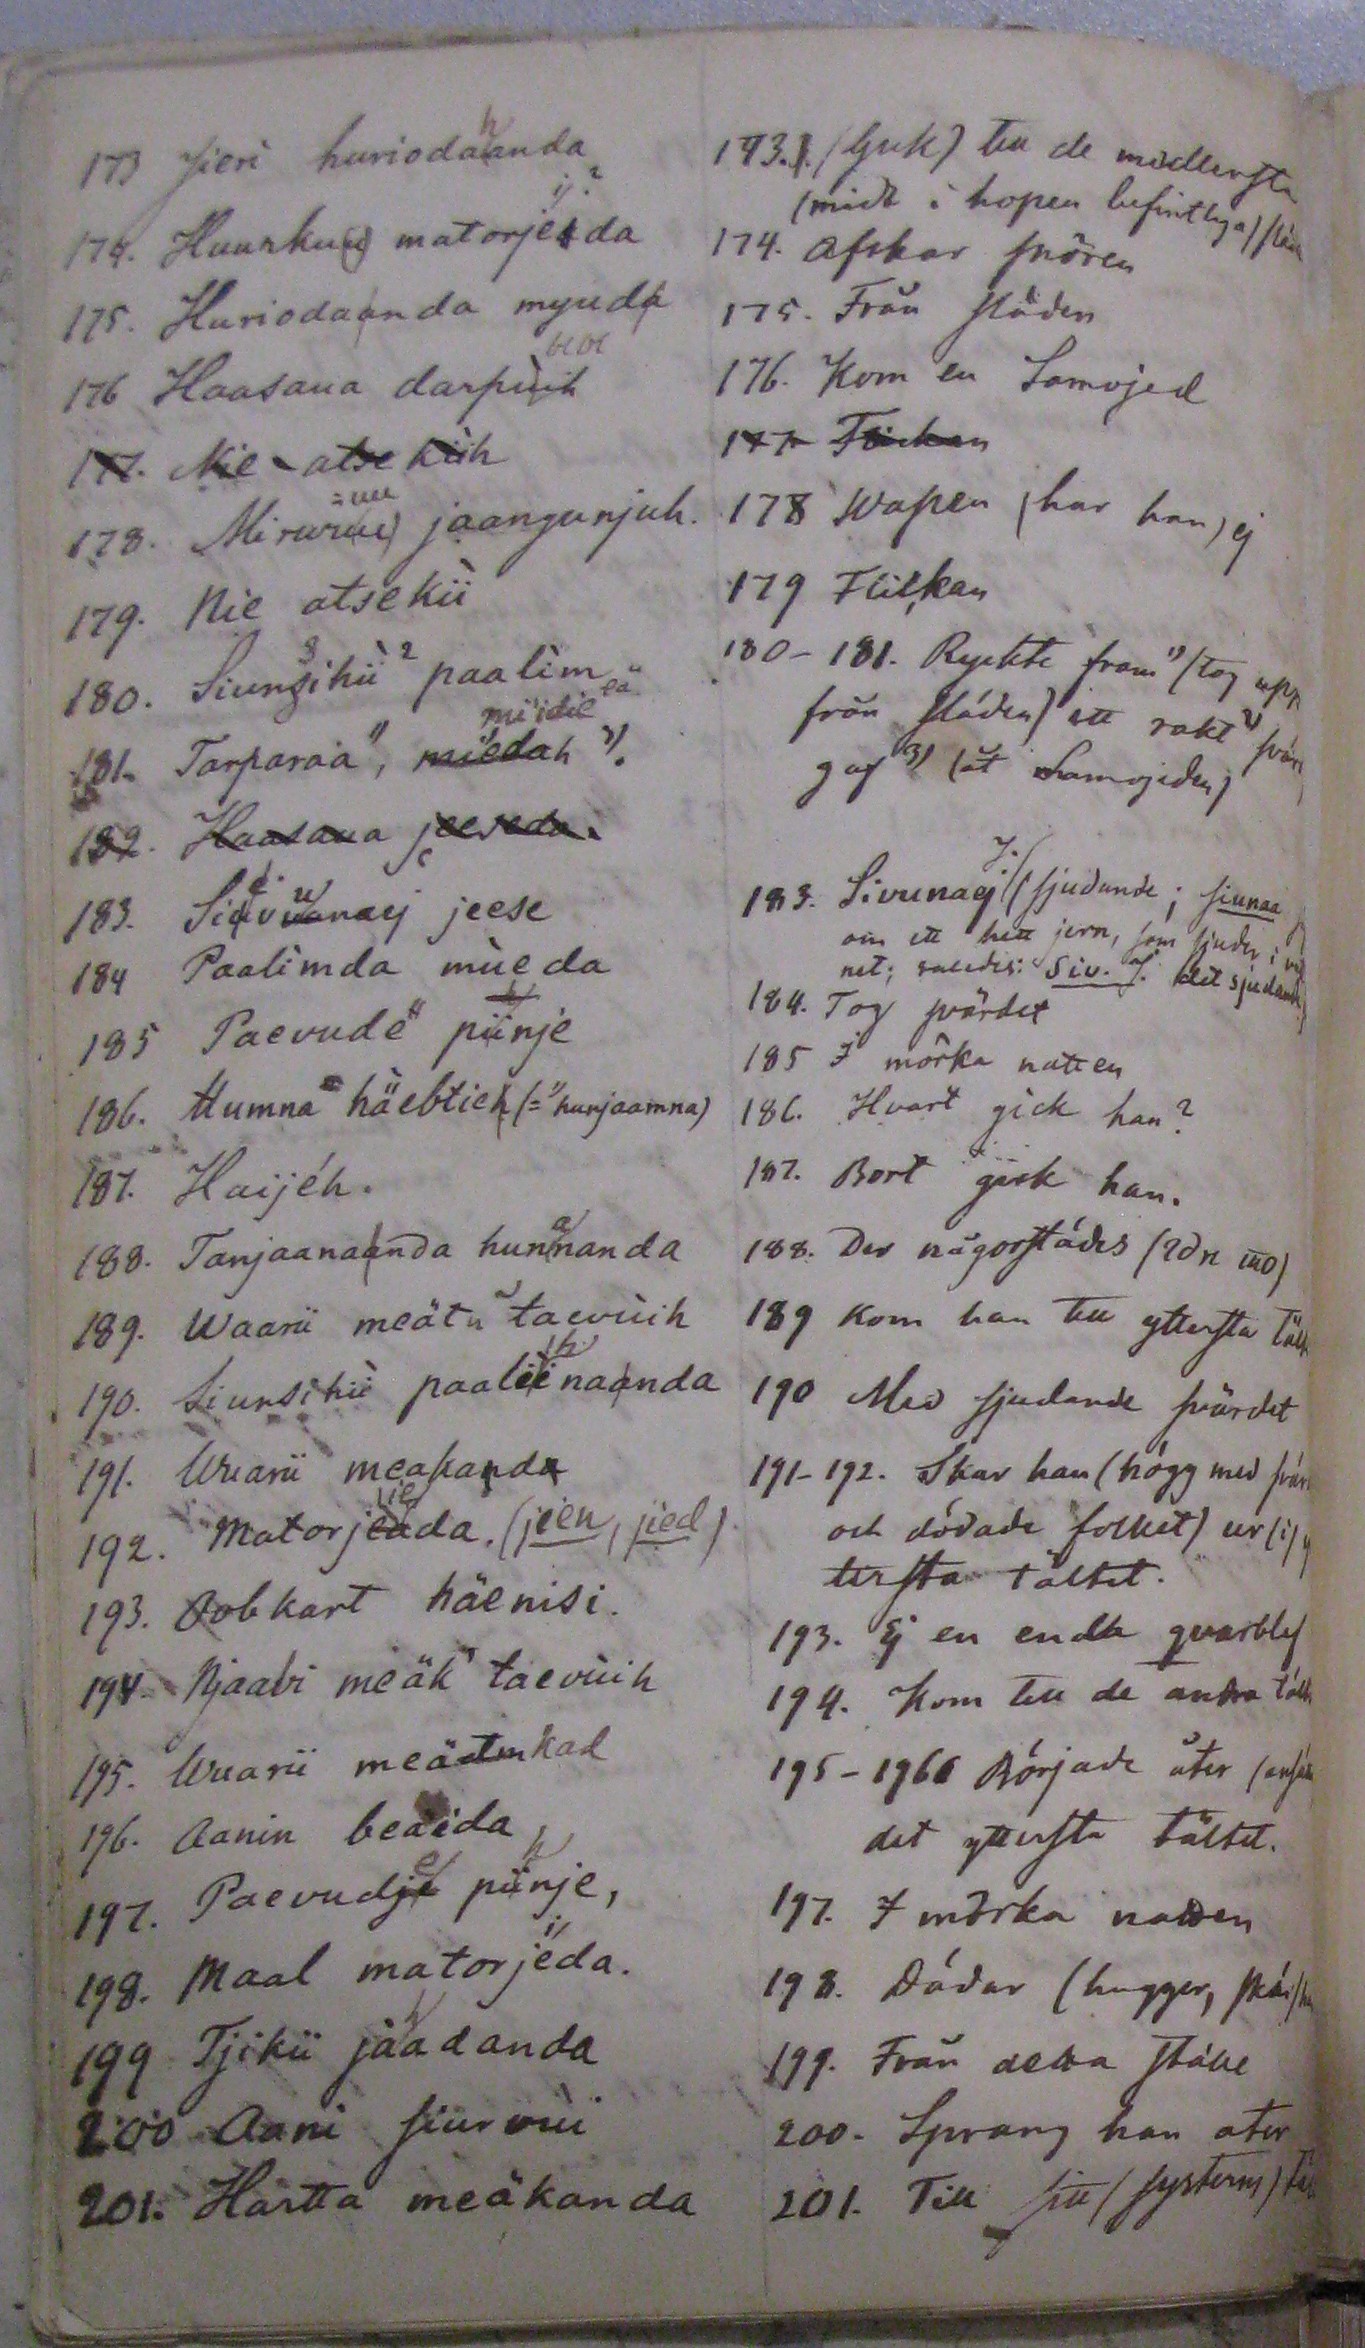 173 Jieri huriodaanda
174. Huurkuu matorjeda
175. Huriodaanda myuda
176 Haasaua darpüih
177. Nie atse küh
178. Miruruu jaangunjuh.
179. Nie atsekü
180. Siunsihü paalim
181. Tarparaa, miedah miidie
182. Haasaua jeeseda.
183. Siuvunaej jeese
184 Paalimda mueda
185 Paevude piinje
186. Humna häebtieh (= hunjaamna)
187. Haijéh.
188. Tanjaanaanda hunnanda
189. Waarii meätu taevüih
190. Siunsihü paaliinaanda
191. Wuarii meakanda
192. Matorjeada. (jien, jied)
193. Oobkart häenisi.
194. Njaabi meäk taevüih
195. Wuarii meätmkad
196. Aanin beaida,
197. Paevudje piinje,
198. Maal matorjeda.
199 Tjikii jaadanda
200 Aani siurvüi
201. Hartta meäkanda
173. (ljuk) till de medlersta
(midt i hopen befintlya)
174. Afskar snören
175. Från släden
176. Kom en Samojed
177 Flickan
178 Wapen (har han) ej
179 Flickan
180-181. Ryckte fram 1) (tog upp
från släden) ett rakt 2)
gaf 3) (åt Samojeden)
183. Sivunaej J. (sjudande; siunaa
om ett hett jern, som sjuder i
net; saledes: Siv. J. det sjudande
184. Tog svärdet
185 I mörka natten
186. Hvart gick han?
187. Bort gick han.
188. Der någorstädes
189 Kom han till yttersta
190 Med sjudande svärdet
191-192. Skar han (högg med
och dödade folket) ur (i)
tersta tältet.
193. Ej en enda qvarblef
194. Kom till de andra
195-196 Började åter
det yttersta tältet.
197. I mörka natten
198. Dödar (hugger,
199. Från detta ställe
200. Sprang han åter
201. Till sitt (systerns)